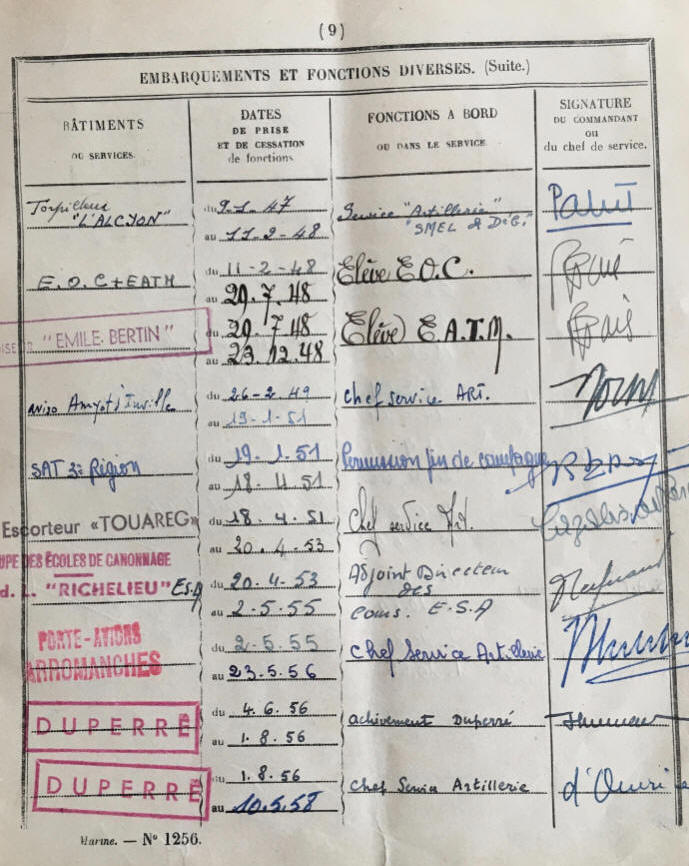 (9)
EMBARQUEMENTS ET FONCTIONS DIVERSES. (Suite.)
BÂTIMENTS
OU SERVICES.
DATES
DE PRISE
ET DE CESSATION
de fonctions
FONCTIONS A BORD
OU DANS LE SERVICE
SIGNATURE
DU COMMANDANT
ou
du chef de service.
Torpilleur
"L'ALCYON"
du 9.1.47
au 11-2-48
Service "Artillerie"
"SMEL & D.G."
E.O.C + EATM
du 11-2-48
au 29.7.48
Elève E.O.C.
"EMILE BERTIN"
du 29.7.48
au 23.12.48
Elève E.A.T.M.
aviso Amyot d'Inville
du 26-2-49
au 19-1-51
chef service ART.
SAT 3e Région
du 19.1.51
au 18.4.51
Permission fin de campagne
Escorteur «TOUAREG»
du 18.4.51
au 20.4.53
Chef service Art.
UPE DES ÉCOLES DE CANONNAGE
d. L. "RICHELIEU" E.S.A
du 20.4.53
au 2.5.55
Adjoint Directeur
des
cours. E.S.A
PORTE-AVIONS
ARROMANCHES
du 2-5.55
au 23.5.56
Chef Service Artillerie
DUPERRÉ
du 4.6.56
au 1.8.56
achèvement Duperré
DUPERRÉ
du 1.8.56
au 10.5.58
chef Service Artillerie
Marine. — N° 1256.